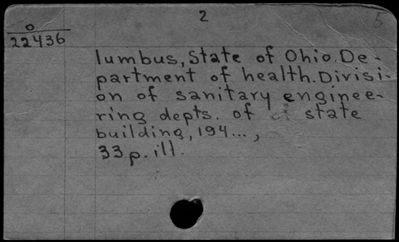 2
5
0
22436
lumbus, State of Ohio. De-
partment of health. Divisi-
on of sanitary enginee-
ring depts. of state
building, 194...,
33 p. ill.